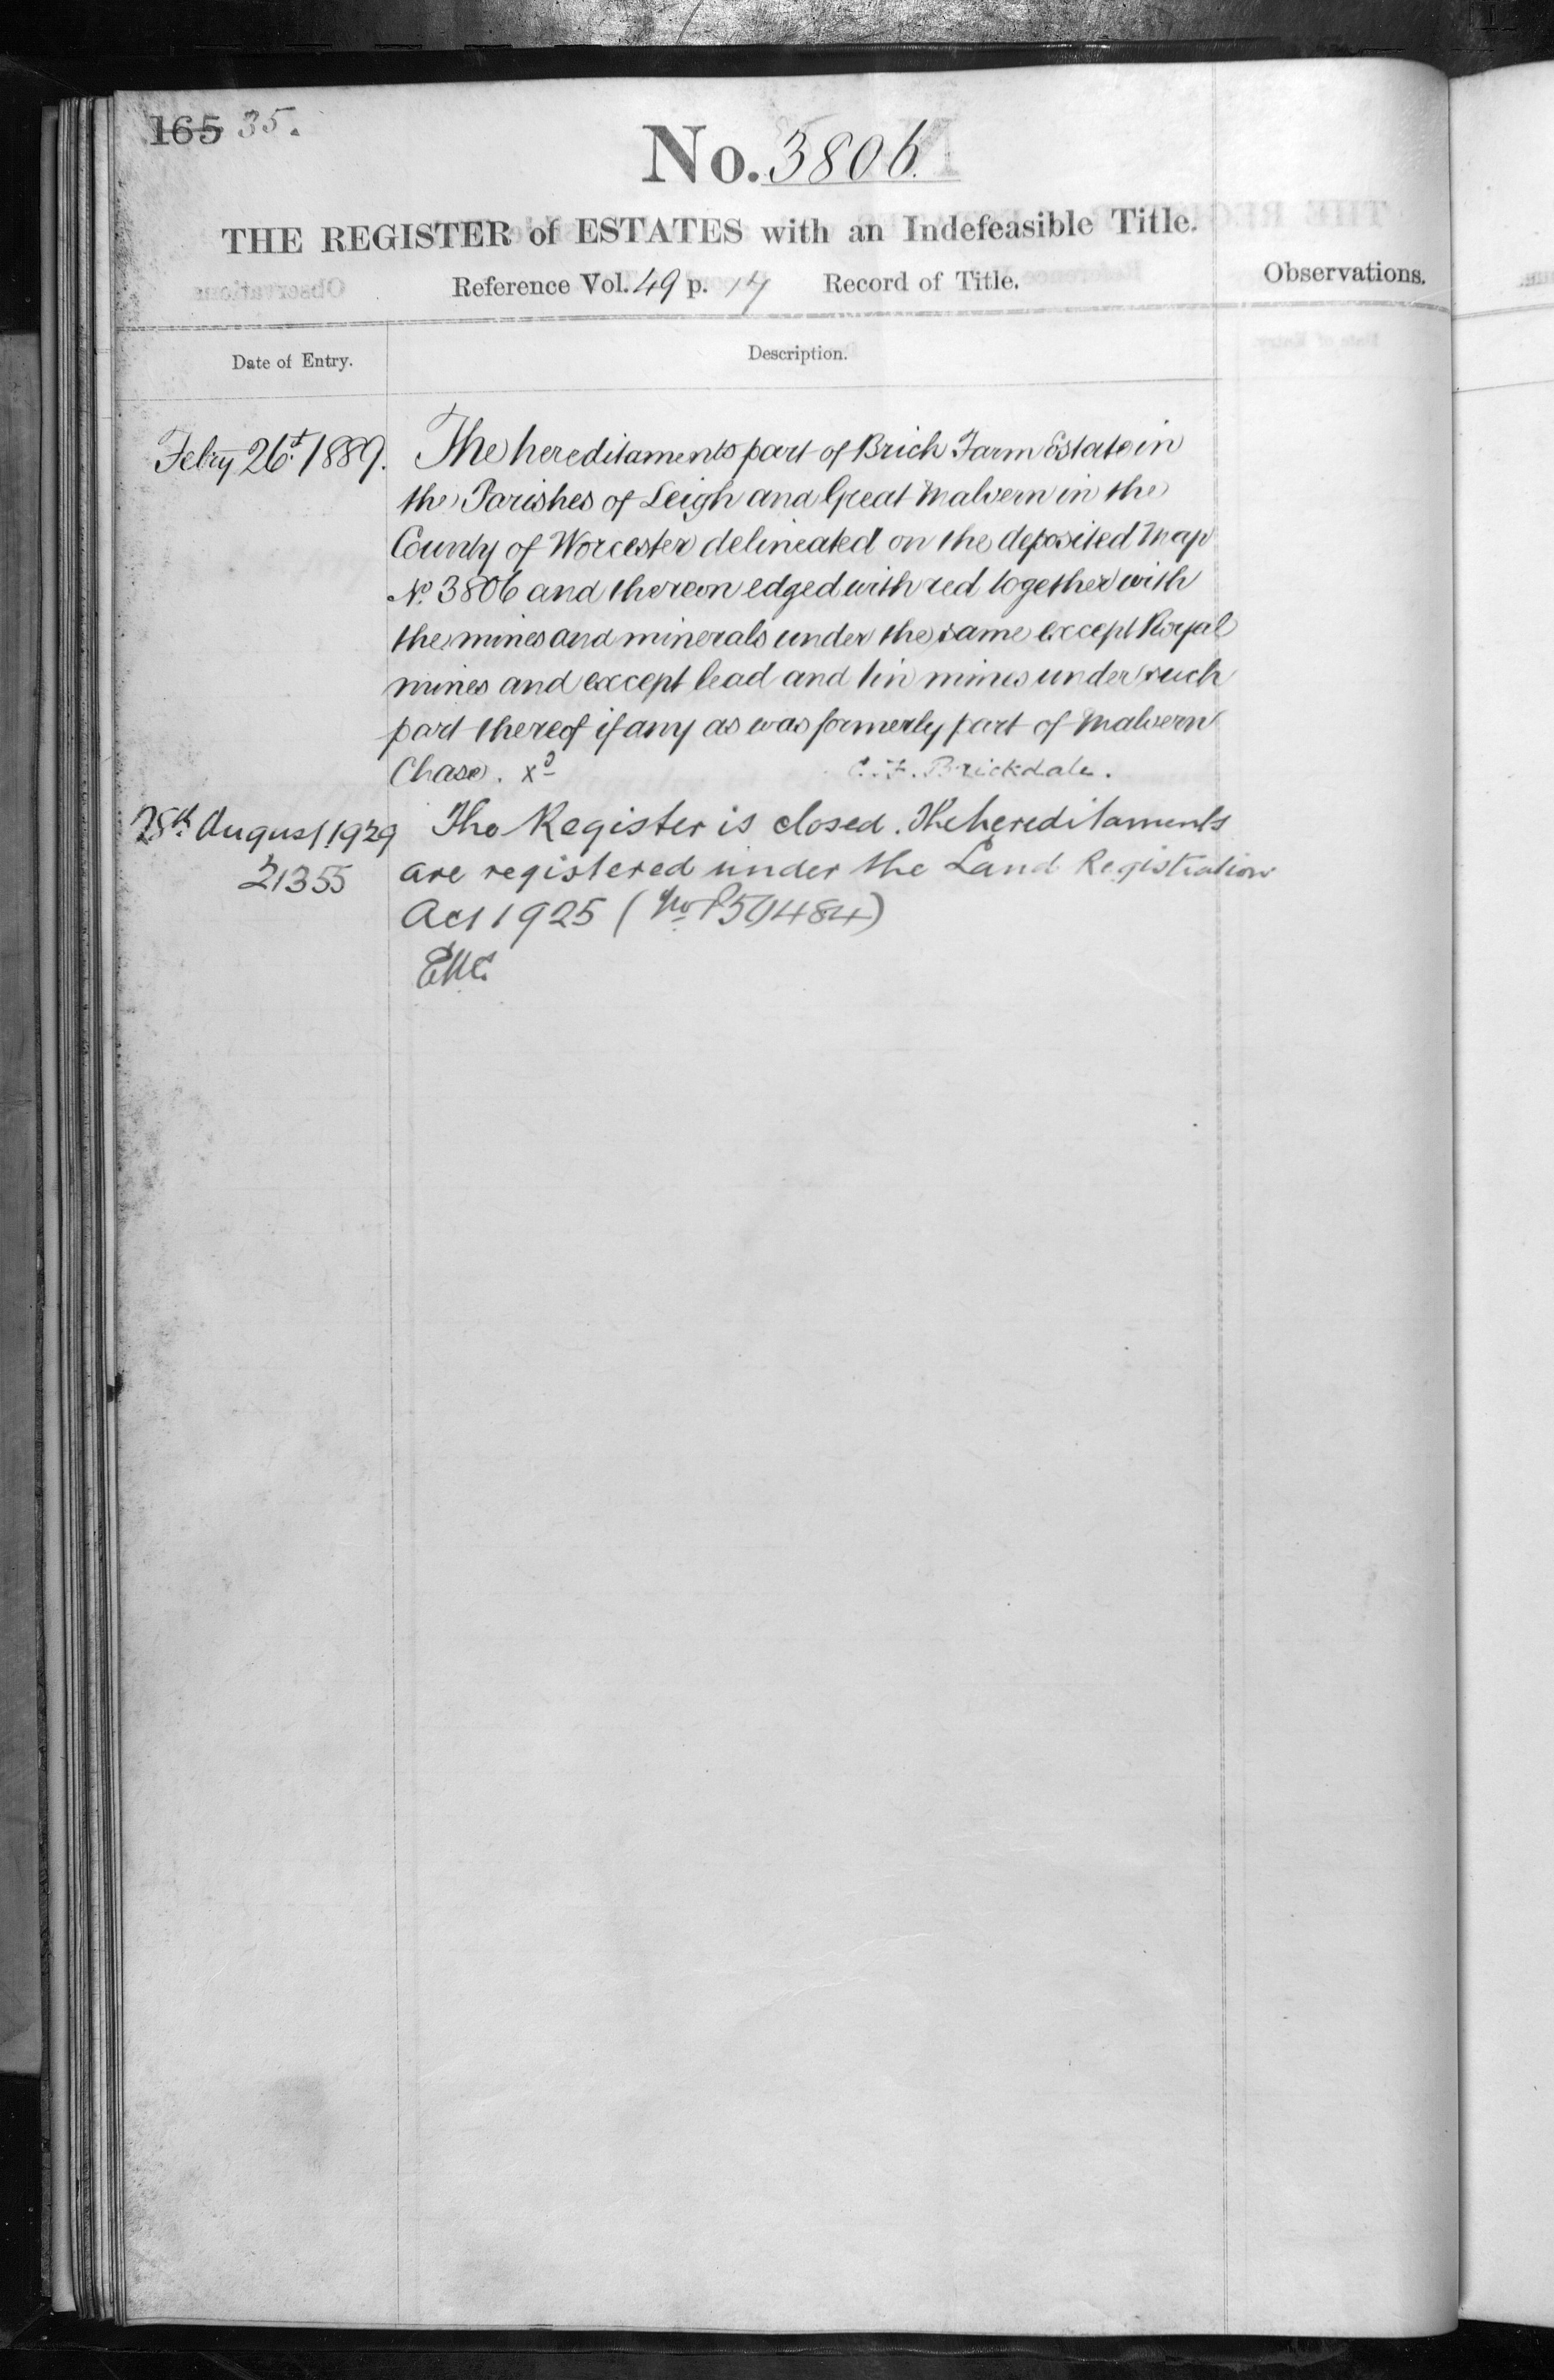 165 35.
No. 3806.
THE REGISTER of ESTATES with an Indefeasible Title.
Reference Vol. 49 p. 17 Record of Title.
Observations.
Date of Entry.
Description.
Feby 26th 1889. The hereditaments part of Brick Farm Estate in
the Parishes of Leigh and Great Malvern in the
County of Worcester delineated on the deposited Map
No. 3806 and thereon edged with red together with
the mines and minerals under the same except Royal
mines and except lead and tin mines under such
part thereof if any as was formerly part of Malvern
Chase. xd C. F. Brickdale.
28th August 1929 The Register is closed. The hereditaments
21355 are registered under the Land Registration
Act 1925 (No P50484)